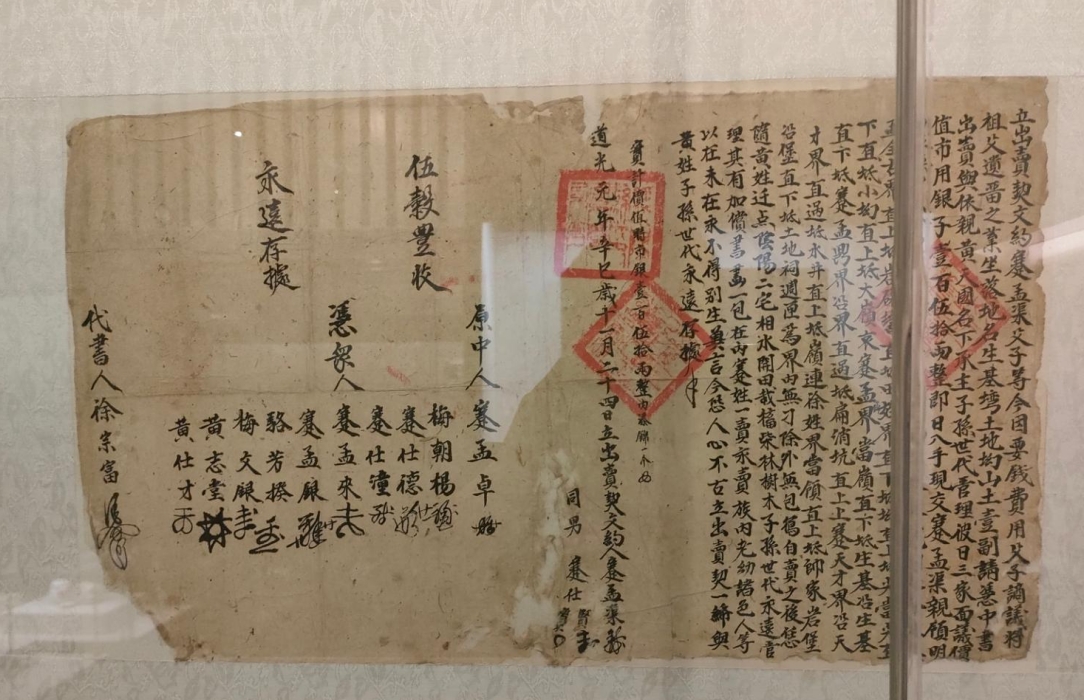 立出賣契文約蹇孟渠父子等今因要錢費用父子謫議將
祖父遺畱之業坐落地名生基塆土地坳山土壹副請憑中書
出賣與依親黃入國名下承主子孫世代管理彼日三家面議價
值市用銀子壹百伍拾両整即日入手現交蹇孟渠親領明
下直坻小坳直上坻大嶺東蹇孟界當嶺直下坻生基沿生基
直下坻蹇孟鼎界沿界直過坻扁淌坑直上上蹇天才界沿天
才界直過坻水井直上坻嶺連徐姓界當領直上坻師家岩堡
沿堡直下坻土地祠週匝爲界內無刁除外無包搖自賣之後恁
隨黃姓迁点陰陽二宅相水開田栽揷柴林樹木子孫世代永遠管
理其有加償書畫一包在內蹇姓一賣永賣族內老幼諸色人等
以在未在永不得别生異言今恐人心不古立出賣契一紙與
黃姓子孫世代永遠存據
實計價值時市銀壹百伍拾両整
道光元年辛巳歲十一月二十四日立出賣契文約人蹇孟渠
同男 蹇仕
原中人 蹇孟卓
伍穀豐收
梅朝楊
蹇仕德
蹇仕潼
憑衆人 蹇孟來
蹇孟銀
駱芳揆
永遠存據
梅文銀
黃志堂
黃仕才
代書人徐宗富